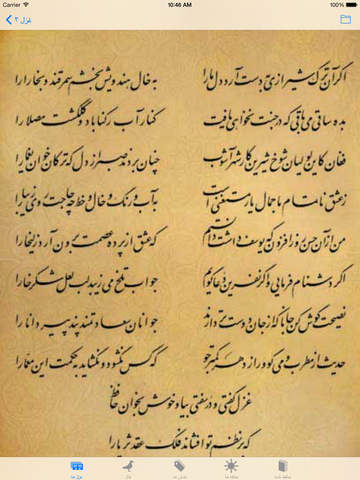 Carrier 10:46 AM 100%
غزل ۳
اگر آن ترک شیرازی به دست آرد دل ما را به خال هندویش بخشم سمرقند و بخارا را
بده ساقی می باقی که در جنت نخواهی یافت کنار آب رکناباد و گلگشت مصلا را
فغان کاین لولیان شوخ شیرین کار شهرآشوب چنان بردند صبر از دل که ترکان خوان یغما را
ز عشق ناتمام ما جمال یار مستغنی است به آب و رنگ و خال و خط چه حاجت روی زیبا را
من از آن حسن روزافزون که یوسف داشت دانستم که عشق از پرده عصمت برون آرد زلیخا را
اگر دشنام فرمایی و گر نفرین دعا گویم جواب تلخ می‌زیبد لب لعل شکرخا را
نصیحت گوش کن جانا که از جان دوست‌تر دارند جوانان سعادتمند پند پیر دانا را
حدیث از مطرب و می گو و راز دهر کمتر جو که کس نگشود و نگشاید به حکمت این معما را
غزل گفتی و در سفتی بیا و خوش بخوان حافظ
که بر نظم تو افشاند فلک عقد ثریا را
غزل ها فال